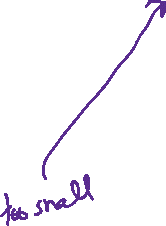 too small